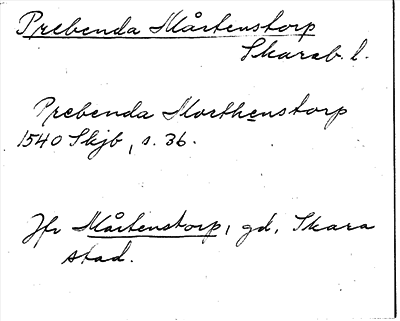 Prebenda Mårtenstorp
Skarab. l.
Prebenda Morthenstorp
1540 Skjb, s. 36.
Jfr Mårtenstorp, gd, Skara
stad.